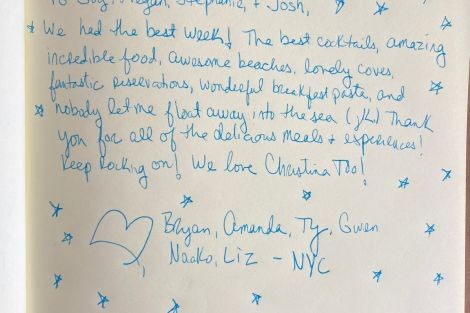 To Guy, Megan, Stephanie, + Josh,
We had the best week! The best cocktails, amazing
incredible food, awesome beaches, lovely coves,
fantastic reservations, wonderful breakfast pasta, and
nobody let me float away into the sea (jk!) Thank
you for all of the delicious meals + experiences!
Keep Rocking on! We love Christina Too!
Bryan, Amanda, Ty, Gwen
Nacko, Liz - NYC